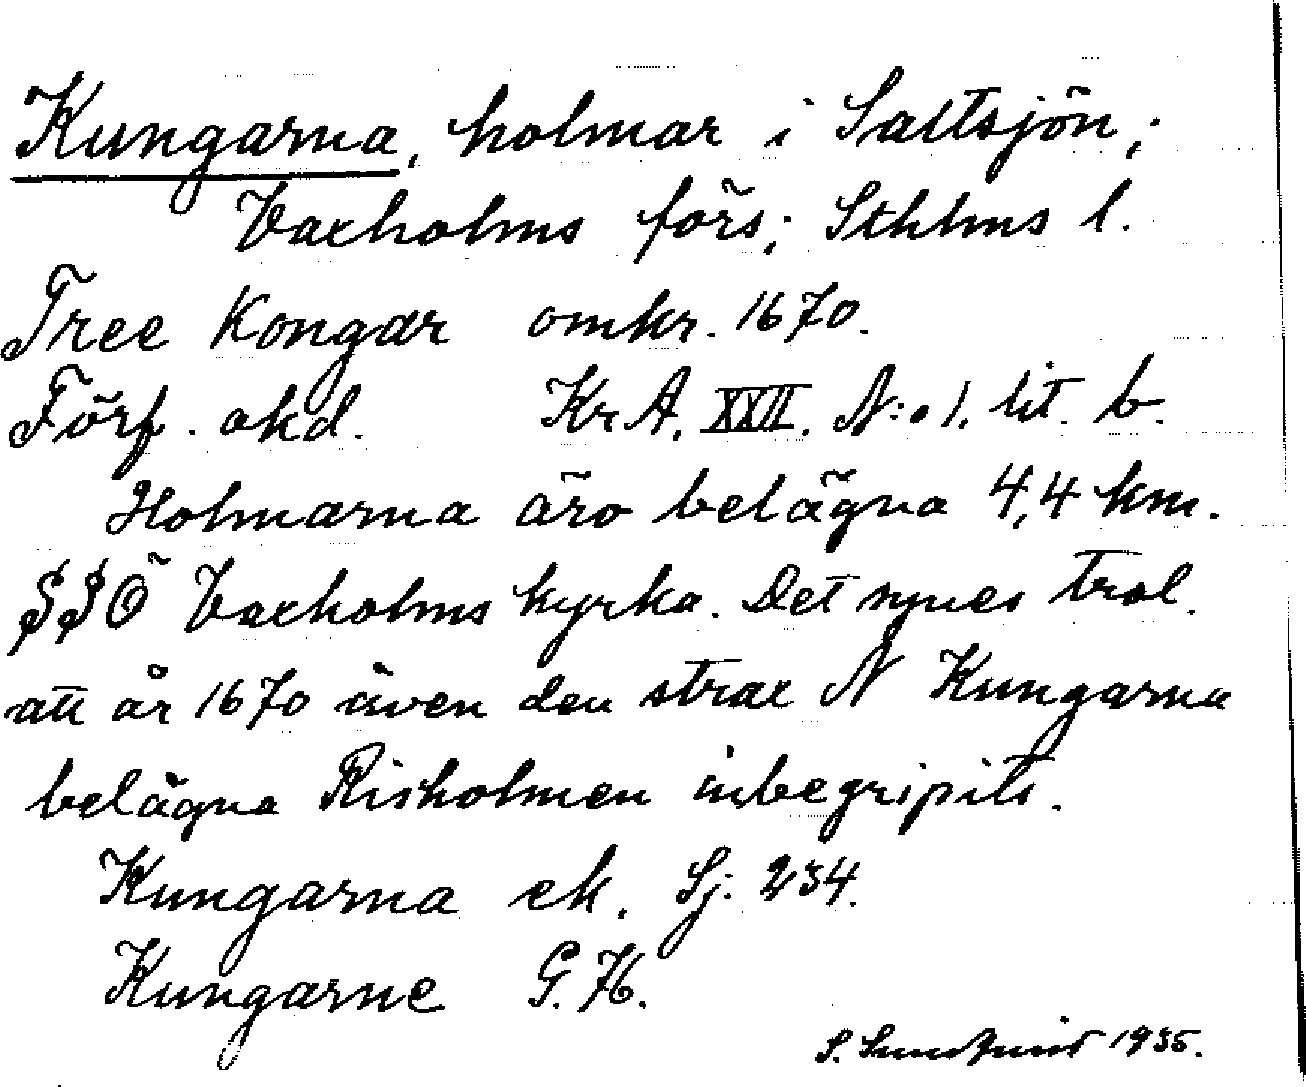 Kungarna, holmar i Saltsjön,
Vaxholms förs; Sthlms l.
Tree Kongar omkr. 1670.
Förf. okd. Kr A. XXII. N:o 1. lit. b.
Holmarna äro belägna 4,4 km.
SSÖ Vaxholms kyrka. Det synes trol.
att år 1670 även den strax N Kungarna
belägna Risholmen inbegripits.
Kungarna ek. Sj. 234.
Kungarne G.K.
S. 1935.